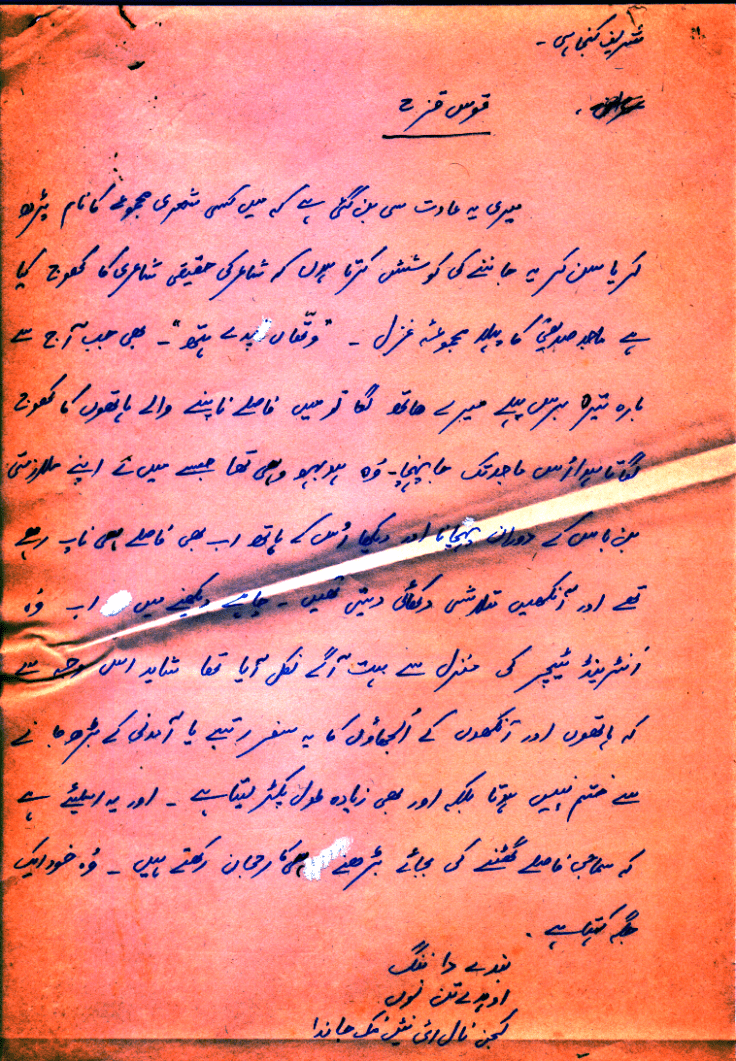 شریف کنجاہی -
قوس قزح
میری یہ عادت سی بن گئی ہے کہ میں کسی شعری مجموعے کا نام پڑھ
کر یا سن کر یہ جاننے کی کوشش کرتا ہوں کہ شاعر کی حقیقی شاعری کا کھوج کیا
ہے ماجد صدیقی کا پہلا مجموعۂ غزل - "وتھاں ناپدے ہتھ" - بھی جب آج سے
بارہ تیرہ برس پہلے میرے ہاتھ لگا تو میں فاصلے ناپنے والے ہاتھوں کا کھوج
لگاتا ہوا اُس ماجد تک جا پہنچا - وُہ ہو بہو وہی تھا جسے میں نے اپنے ملازمتی
بن باس کے دوران پہچانا اور دیکھا اُس کے ہاتھ اب بھی فاصلے ہی ناپ رہے
تھے اور آنکھیں تلاشی دکھائی دیتی تھیں - چاہے دیکھنے میں اب وُہ
اَنٹرینڈ ٹیچر کی منزل سے بہت آگے نکل آیا تھا شاید اس وجہ سے
کہ ہاتھوں اور آنکھوں کے اُلجھاؤں کا یہ سفر رتبے یا آمدنی کے بڑھ جانے
سے ختم نہیں ہوتا بلکہ اور بھی زیادہ طول پکڑ لیتا ہے - اور یہ اسلیئے ہے
کہ سماجی فاصلے گھٹنے کی بجائے بڑھنے ہی کا رحجان رکھتے ہیں - وُہ خود ایک
جگہ کہتا ہے -
بندے دا ننگ
اوہدے تن نوں
کجن نال ای نئیں مُک جاندا